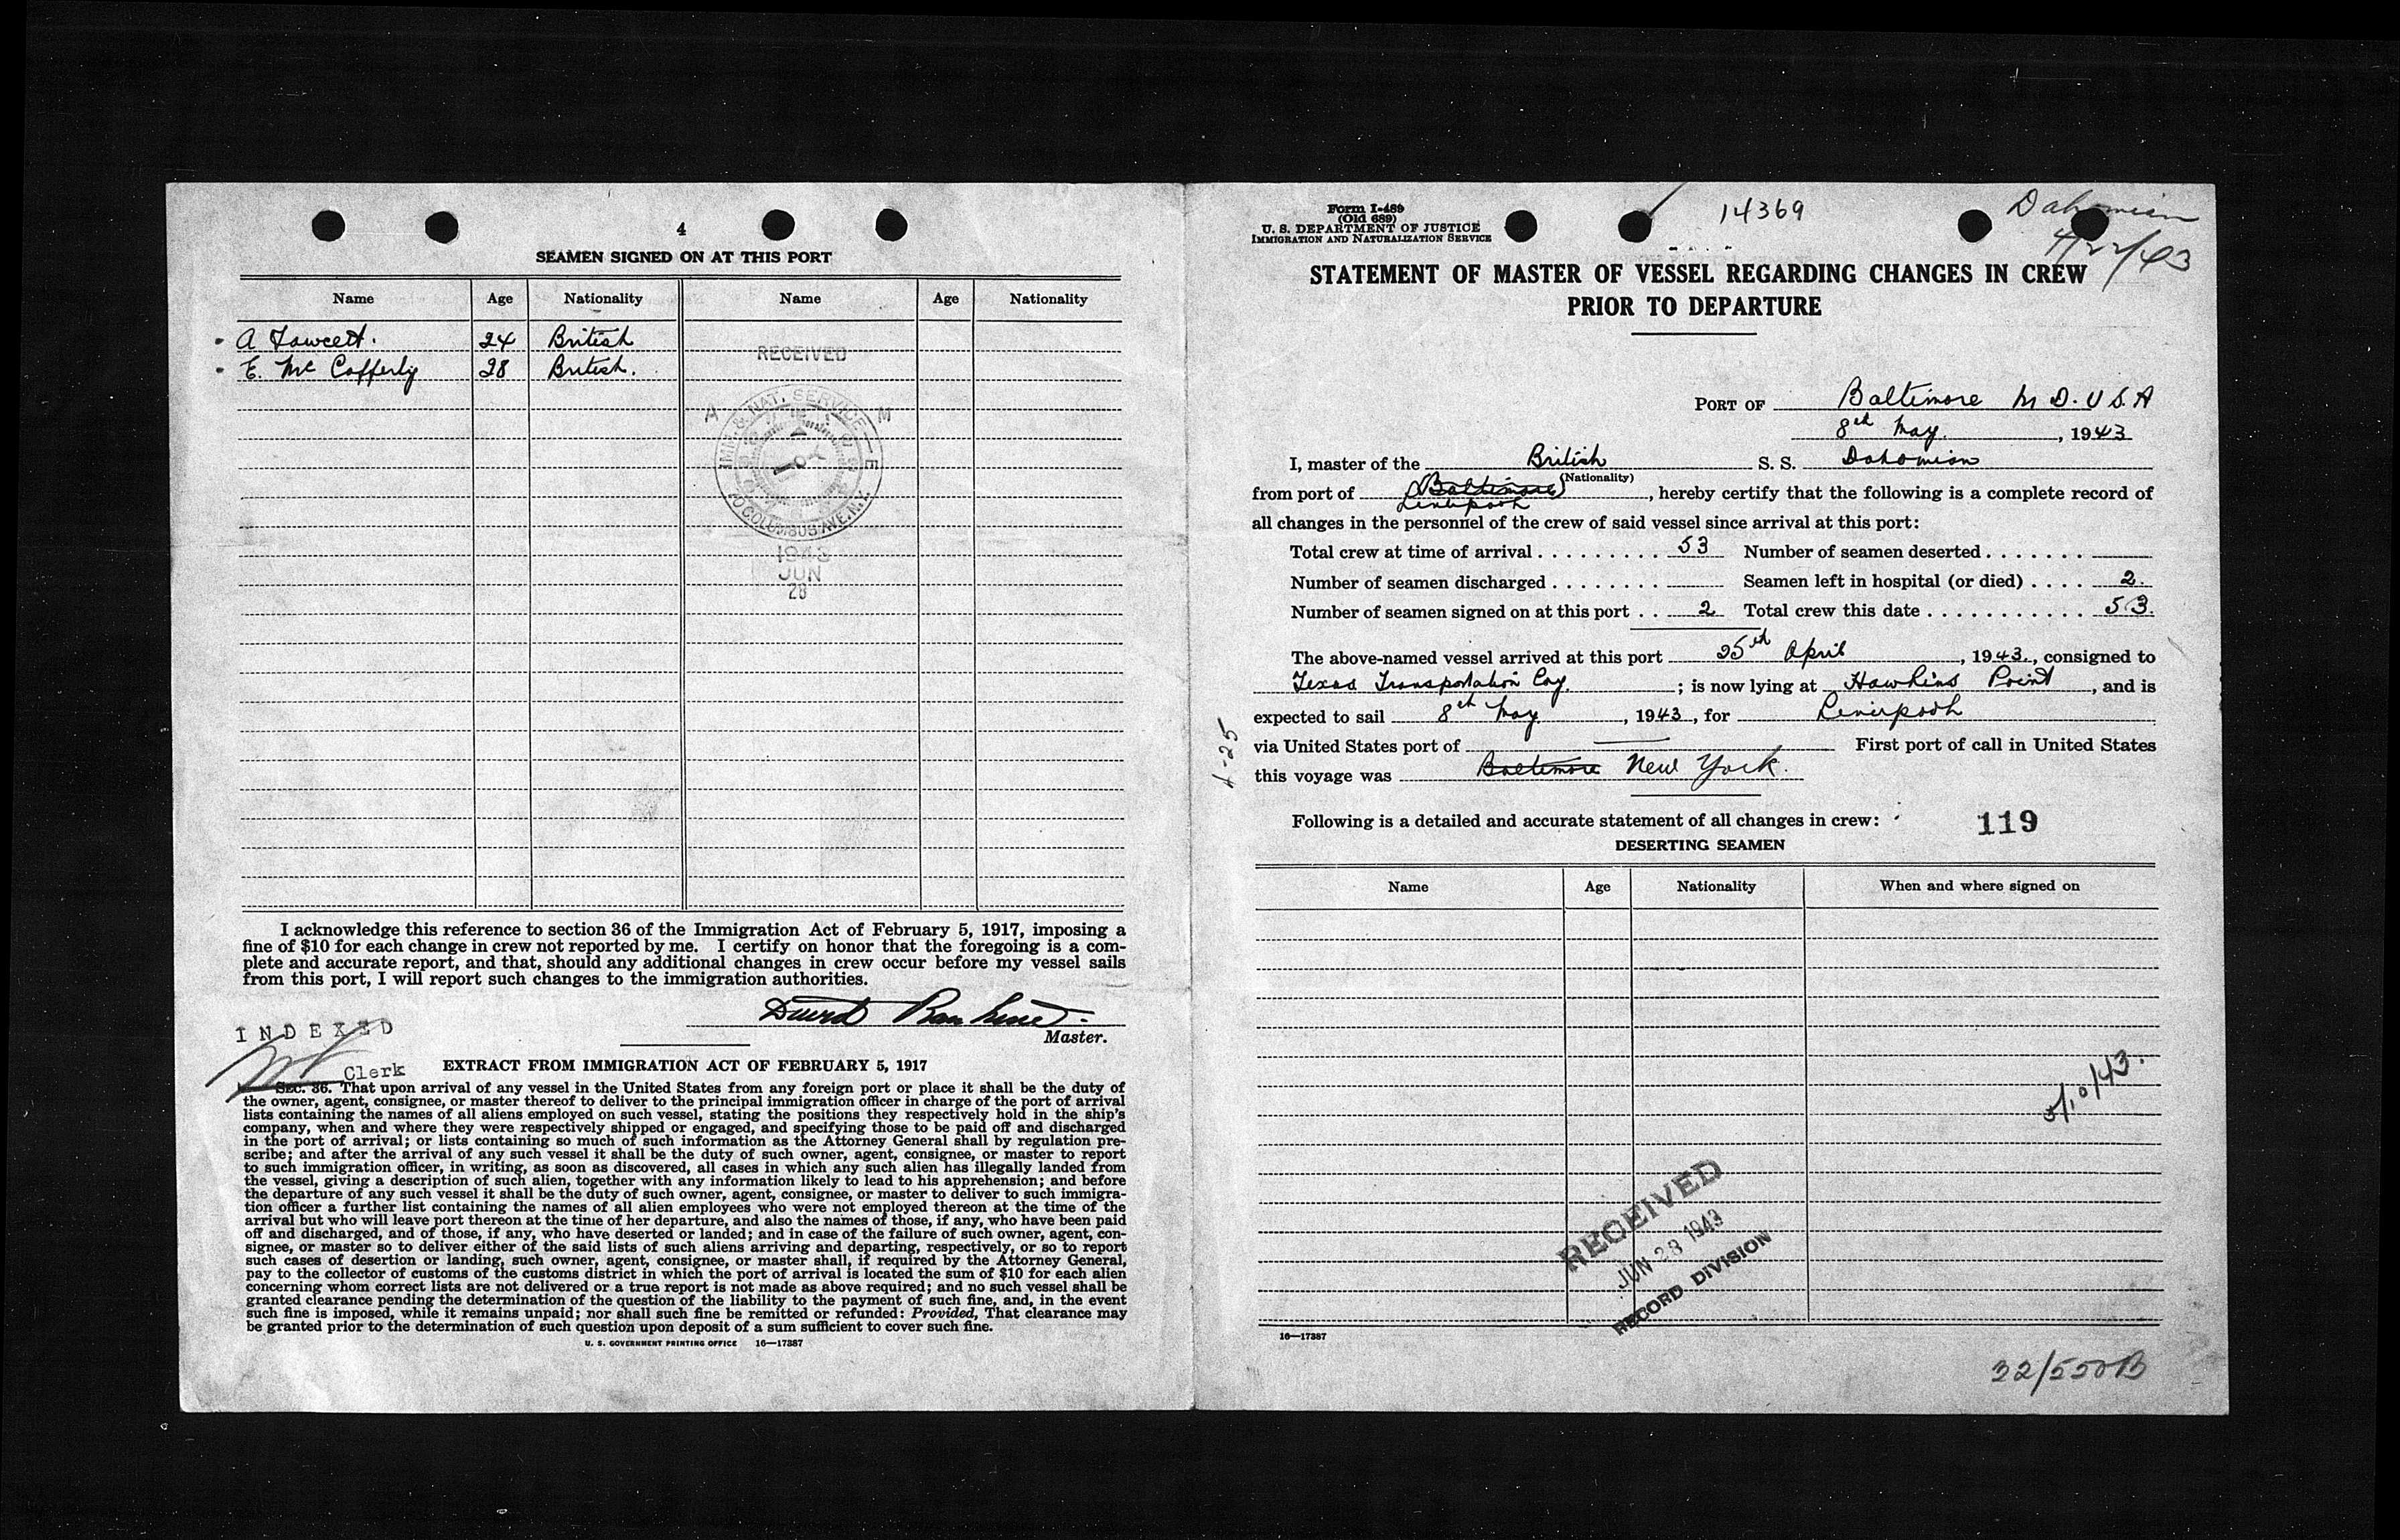 4
SEAMEN SIGNED ON AT THIS PORT
Name Age Nationality Name Age Nationality
A Fawcett. 24 British
E. Mc Cafferty 28 British.
RECEIVED
A M
IMM. & NAT. SERVICE
70 COLUMBUS AVE. N.Y.
1943
JUN
28
I acknowledge this reference to section 36 of the Immigration Act of February 5, 1917, imposing a
fine of $10 for each change in crew not reported by me. I certify on honor that the foregoing is a com-
plete and accurate report, and that, should any additional changes in crew occur before my vessel sails
from this port, I will report such changes to the immigration authorities.
David Rankine.
Master.
INDEXED
Clerk
EXTRACT FROM IMMIGRATION ACT OF FEBRUARY 5, 1917
SEC. 36. That upon arrival of any vessel in the United States from any foreign port or place it shall be the duty of
the owner, agent, consignee, or master thereof to deliver to the principal immigration officer in charge of the port of arrival
lists containing the names of all aliens employed on such vessel, stating the positions they respectively hold in the ship's
company, when and where they were respectively shipped or engaged, and specifying those to be paid off and discharged
in the port of arrival; or lists containing so much of such information as the Attorney General shall by regulation pre-
scribe; and after the arrival of any such vessel it shall be the duty of such owner, agent, consignee, or master to report
to such immigration officer, in writing, as soon as discovered, all cases in which any such alien has illegally landed from
the vessel, giving a description of such alien, together with any information likely to lead to his apprehension; and before
the departure of any such vessel it shall be the duty of such owner, agent, consignee, or master to deliver to such immigra-
tion officer a further list containing the names of all alien employees who were not employed thereon at the time of the
arrival but who will leave port thereon at the time of her departure, and also the names of those, if any, who have been paid
off and discharged, and of those, if any, who have deserted or landed; and in case of the failure of such owner, agent, con-
signee, or master so to deliver either of the said lists of such aliens arriving and departing, respectively, or so to report
such cases of desertion or landing, such owner, agent, consignee, or master shall, if required by the Attorney General,
pay to the collector of customs of the customs district in which the port of arrival is located the sum of $10 for each alien
concerning whom correct lists are not delivered or a true report is not made as above required; and no such vessel shall be
granted clearance pending the determination of the question of the liability to the payment of such fine, and, in the event
such fine is imposed, while it remains unpaid; nor shall such fine be remitted or refunded: Provided, That clearance may
be granted prior to the determination of such question upon deposit of a sum sufficient to cover such fine.
U. S. GOVERNMENT PRINTING OFFICE 16—17387
Form I-489
(Old 689)
U. S. DEPARTMENT OF JUSTICE
IMMIGRATION AND NATURALIZATION SERVICE
14369
Dahomian
4/22/43
STATEMENT OF MASTER OF VESSEL REGARDING CHANGES IN CREW
PRIOR TO DEPARTURE
PORT OF Baltimore M D. U S. A
8th May, 1943
I, master of the British S. S. Dahomian
(Nationality)
from port of Baltimore, hereby certify that the following is a complete record of
Liverpool
all changes in the personnel of the crew of said vessel since arrival at this port:
Total crew at time of arrival . . . . . . . . . 53 Number of seamen deserted . . . . . . .
Number of seamen discharged . . . . . . . . Seamen left in hospital (or died) . . . . 2.
Number of seamen signed on at this port . . 2 Total crew this date . . . . . . . . . . . . 53.
The above-named vessel arrived at this port 25th April, 1943., consigned to
Texas Transportation Coy.; is now lying at Hawkins Point, and is
expected to sail 8th May, 1943, for Liverpool
via United States port of — First port of call in United States
this voyage was Baltimore New York.
4-25
Following is a detailed and accurate statement of all changes in crew:
119
DESERTING SEAMEN
Name Age Nationality When and where signed on
5/10/43.
RECEIVED
JUN 28 1943
RECORD DIVISION
16—17387
32/550B